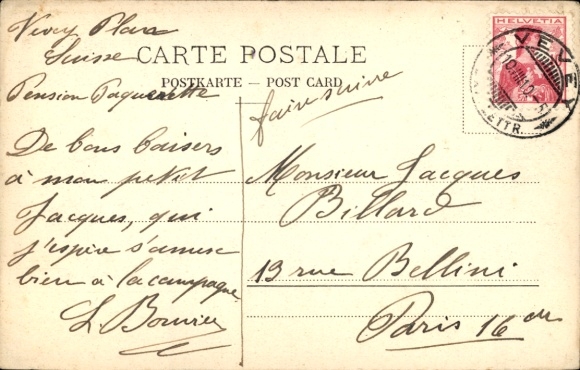 Vevey Plan
Suisse
Pension Paquerette
CARTE POSTALE
POSTKARTE — POST CARD
faire suivre
HELVETIA
VEVEY
LETTR.
De bons baisers
à mon petit
Jacques, qui
j'espère s'amuse
bien à la campagne
L Bouvier
Monsieur Jacques
Billard
13 rue Bellini
Paris 16e